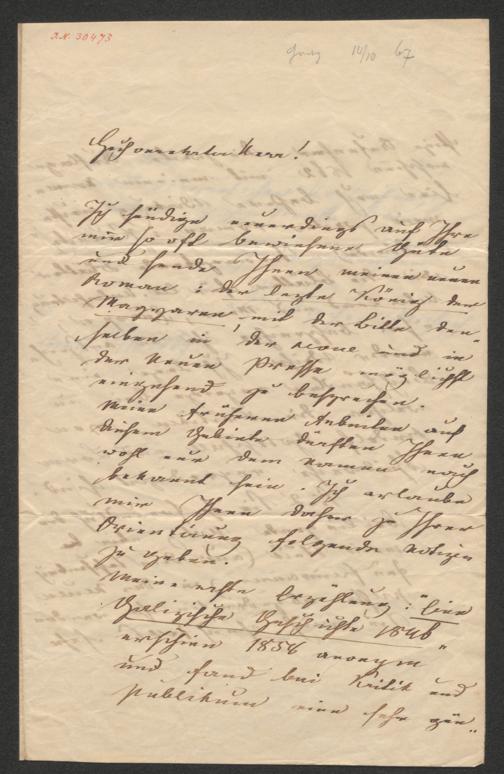 I.N. 30473
Graz 14/10 67
Hochverehrter Herr!
Ich sündige neuerdings auf Ihre
mir so oft bewiesene Güte
und sende Ihnen meinen neuen
Roman: der lezte König der
Magyaren, mit der Bitte den-
selben in der und in
der Neuen Presse möglichst
eingehend zu besprechen.
Meine früheren Arbeiten auf
diesem Gebiete dürften Ihnen
wohl nur dem Namen nach
bekannt sein. Ich erlaube
mir Ihnen daher zu Ihrer
Orientirung folgende Notizen
zu geben.
Meine erste Erzählung: "Eine
Galizische Geschichte 1846"
erschien 1858 anonym
und fand bei Kritik und
Publikum eine sehr gün-